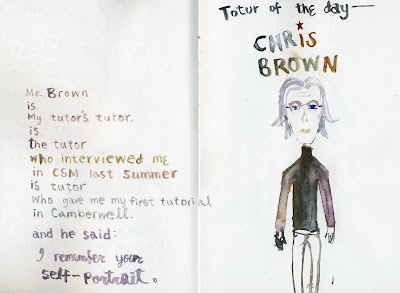 Mr. Brown
is
My tutor's tutor.
is
the tutor
who interviewed me
in CSM last summer
is tutor
who gave me my first tutorial
in Camberwell.
and he said:
I remember your
self-portrait.
Totur of the day—
CHRiS
BROWN